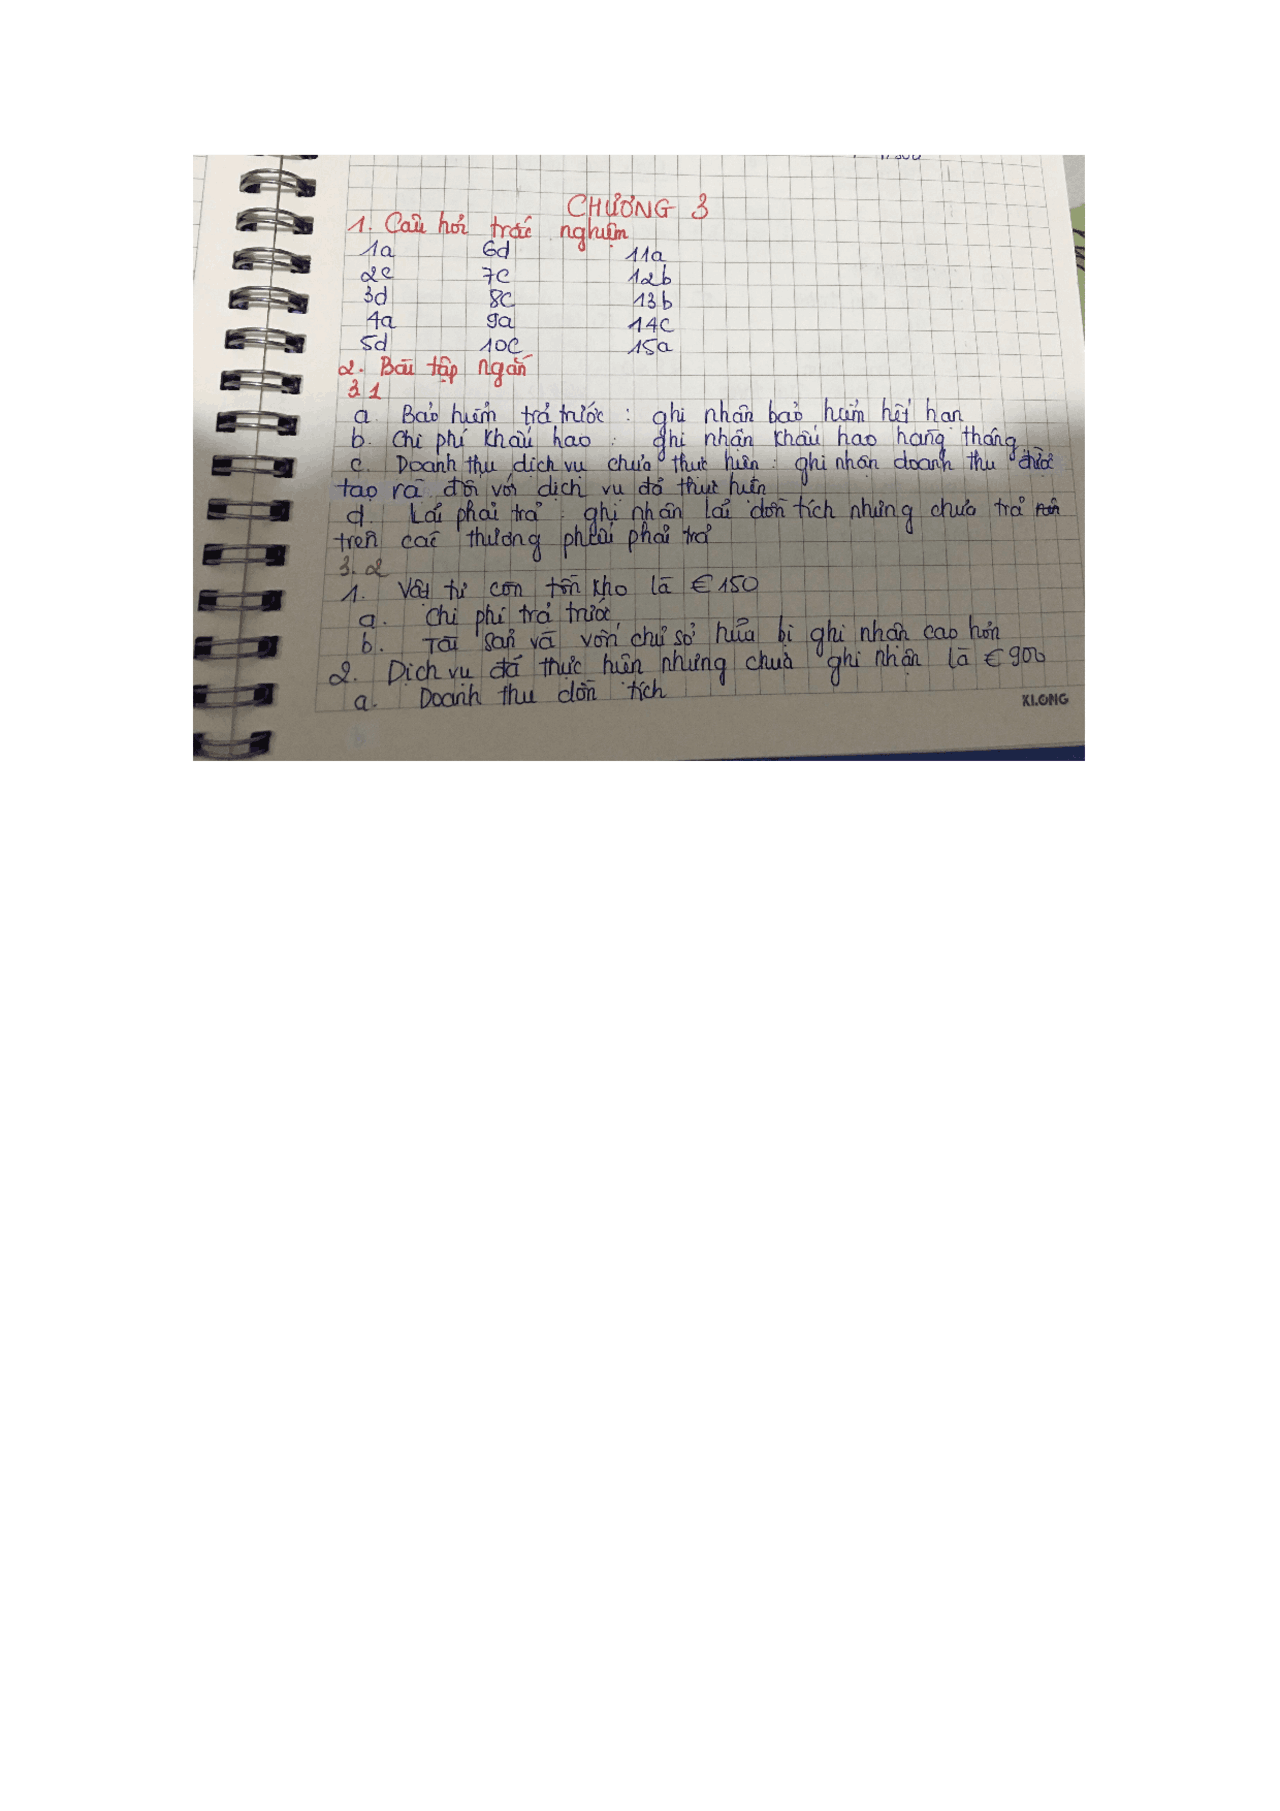 CHƯƠNG 3
1. Câu hỏi trắc nghiệm
1a 6d 11a
2c 7c 12b
3d 8c 13b
4a 9a 14c
5d 10c 15a
2. Bài tập ngắn
3.1
a. Bảo hiểm trả trước : ghi nhận bảo hiểm hết hạn
b. Chi phí khấu hao : ghi nhận khấu hao hàng tháng
c. Doanh thu dịch vụ chưa thực hiện : ghi nhận doanh thu được
tạo ra đối với dịch vụ đã thực hiện
d. Lãi phải trả : ghi nhận lãi dồn tích nhưng chưa trả
trên các thương phiếu phải trả
3.2
1. Vật tư còn tồn kho là € 150
a. Chi phí trả trước
b. Tài sản và vốn chủ sở hữu bị ghi nhận cao hơn
2. Dịch vụ đã thực hiện nhưng chưa ghi nhận là € 900
a. Doanh thu dồn tích
KLONG